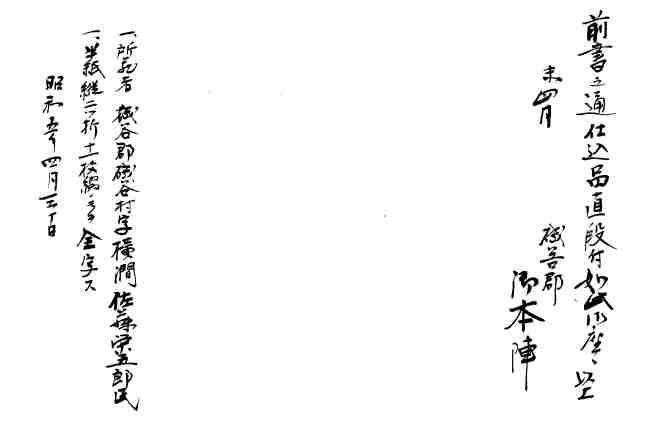 前書之通仕込品直段付如此御座候 以上
未四月
磯谷郡
御本陣
一、所死者 磯谷郡磯谷村字横澗 佐藤栄五郎氏
一、半紙縦二ツ折十一枚綴 全字ス
昭和五年四月三十日